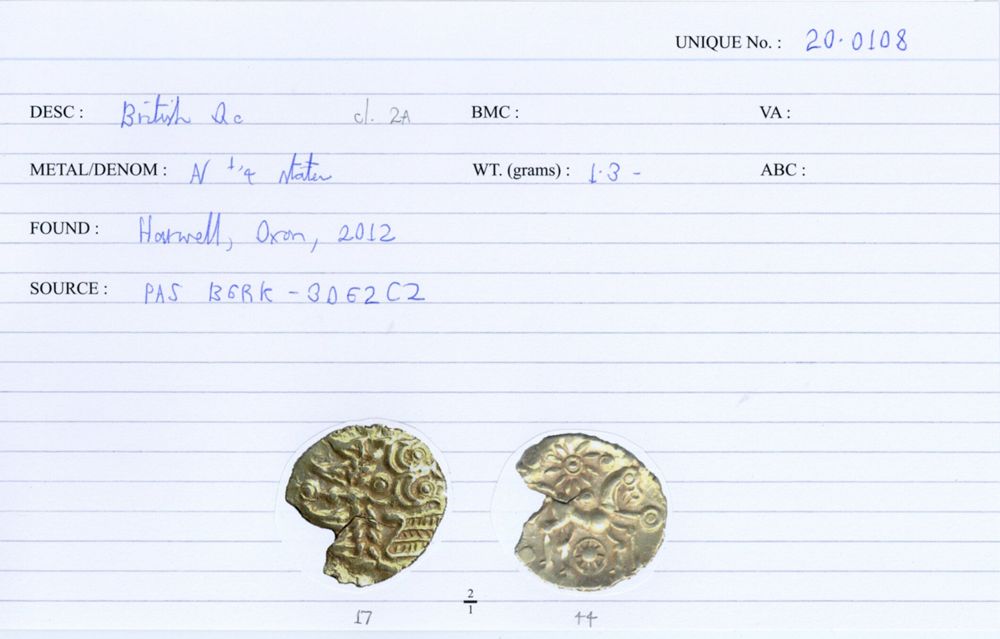 UNIQUE No. : 20.0108
DESC : British Qc cl. 2A BMC : VA :
METAL/DENOM : N 1/4 stater WT. (grams) : 1.3 - ABC :
FOUND : Harwell, Oxon, 2012
SOURCE : PAS BERK-3DE2C2
2
1
17 44